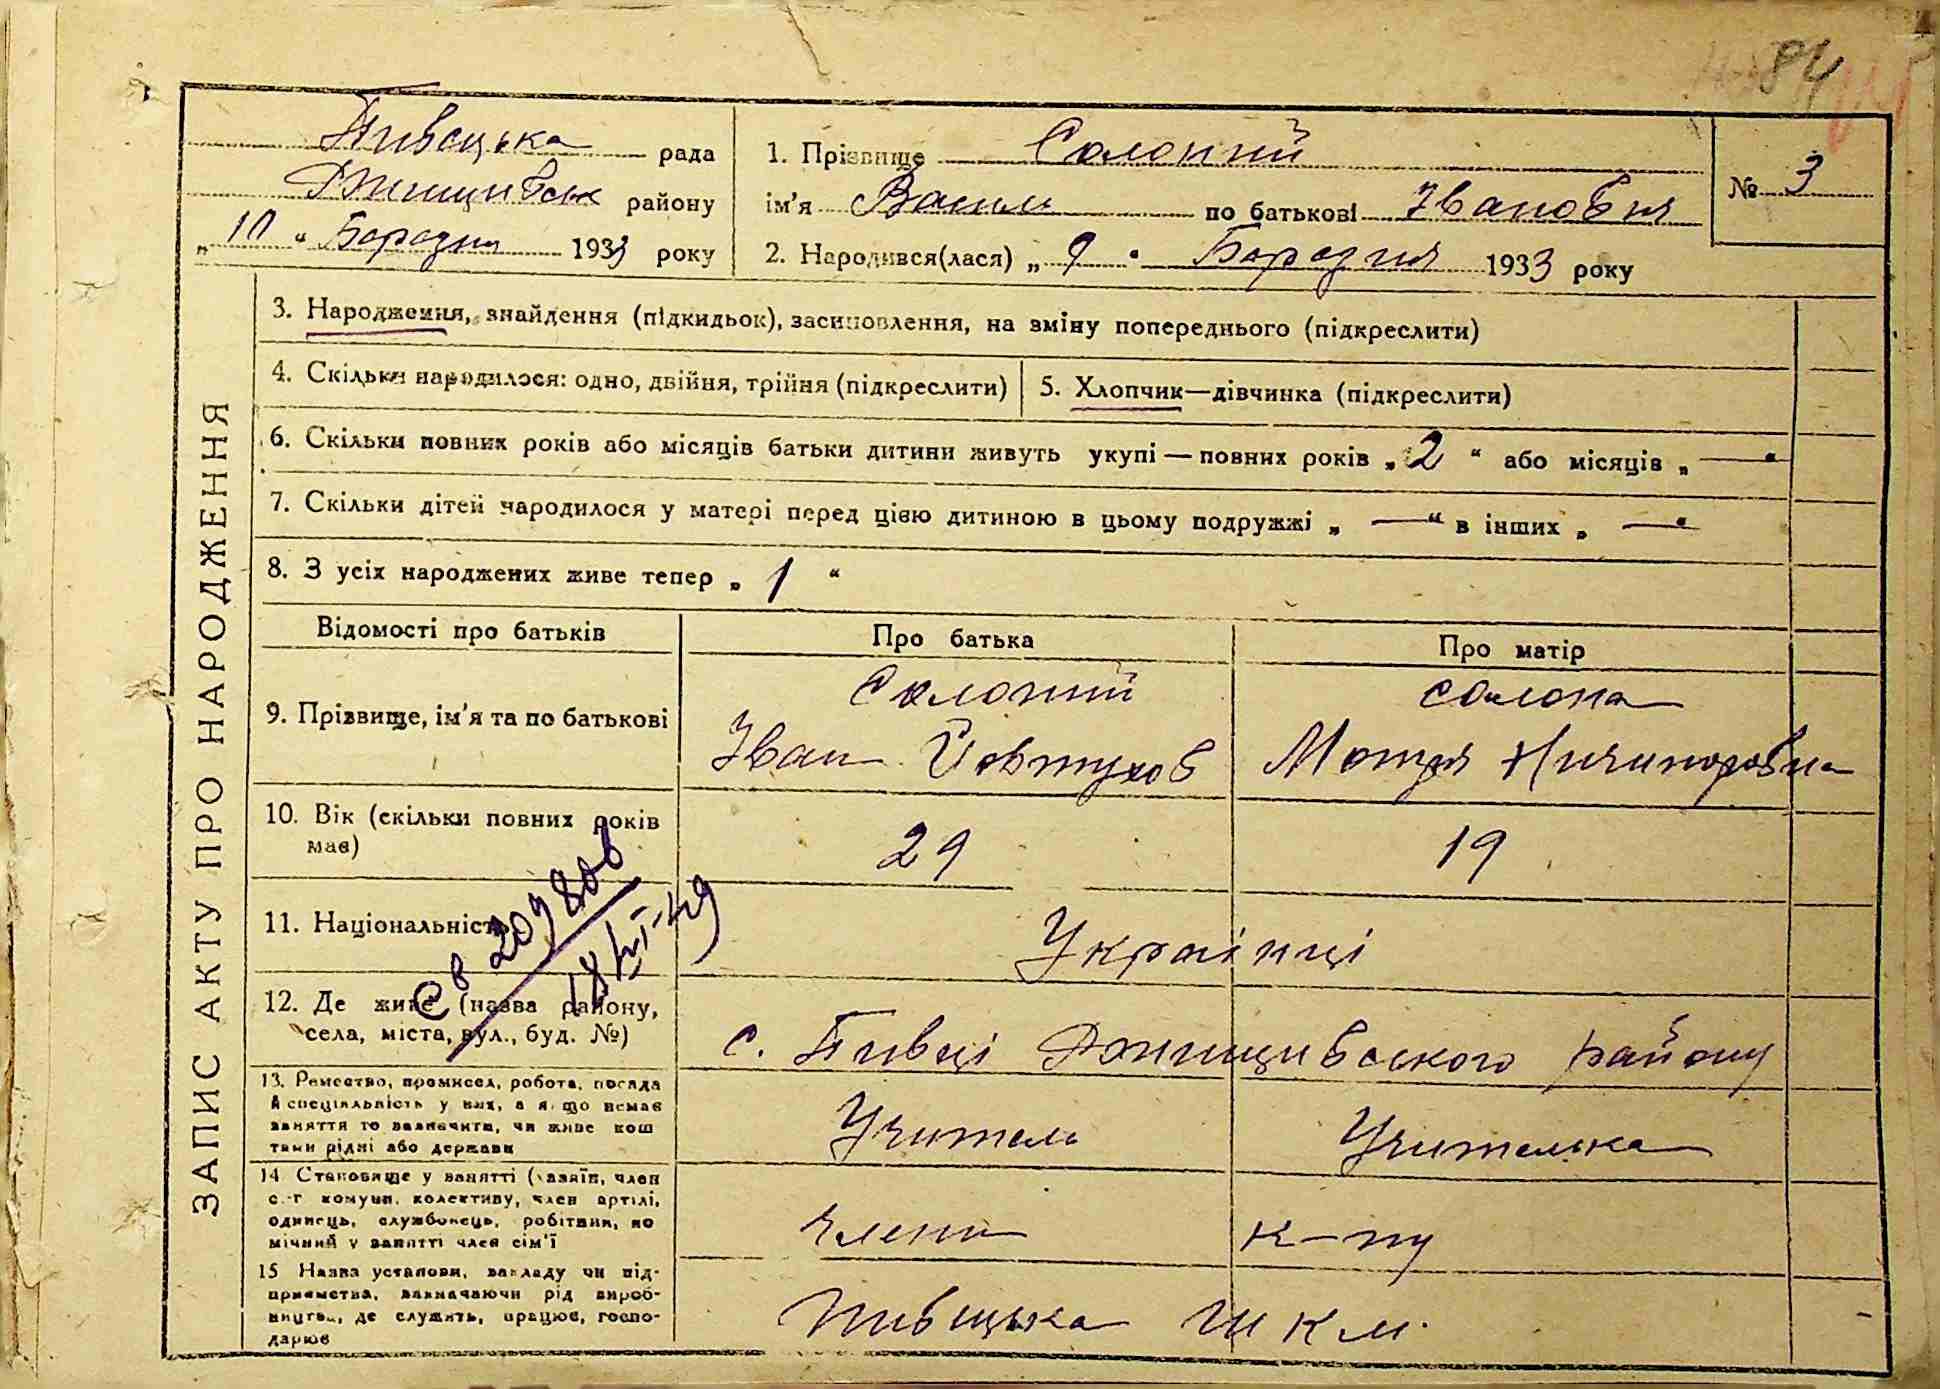 84
Пивецька рада
Ржищівськ району
„10“ Березня 1933 року
1. Прізвище Солопій
ім'я Василь по батькові Івановия
2. Народився(лася) „9“ Березня 1933 року
№ 3
ЗАПИС АКТУ ПРО НАРОДЖЕННЯ
3. Народження, знайдення (підкидьок), засиновлення, на зміну попереднього (підкреслити)
4. Скільки народилося: одно, двійня, трійня (підкреслити)
5. Хлопчик—дівчинка (підкреслити)
6. Скільки повних років або місяців батьки дитини живуть укупі — повних років „2“ або місяців „—“
7. Скільки дітей народилося у матері перед цією дитиною в цьому подружжі „—“ в інших „—“
8. З усіх народжених живе тепер „1“
Відомості про батьків
Про батька
Про матір
9. Прізвище, ім'я та по батькові
Солопій
Іван Йовтухов
солопа
Мотря Ничипоровна
10. Вік (скільки повних років
має)
29
19
11. Національність
Українці
св 209806
18/XI-49
12. Де живе (назва району,
села, міста, вул., буд. №)
с. Пивці Ржищівського району
13. Ремество, промисел, робота, посада
й спеціяльність у них, а якщо немає
заняття то зазначити, чи живе кош
тами рідні або держави
Учитель
Учителька
14. Становище у занятті (хазяїн, член
с.-г. комуни, колективу, член артілі,
одинець, службовець, робітник, по
мічний у занятті член сім'ї
члени к-пу
15. Назва установи, закладу чи під-
приємства, зазначаючи рід вироб-
ництва, де служить, працює, госпо-
дарює
Пивецька ШКМ.